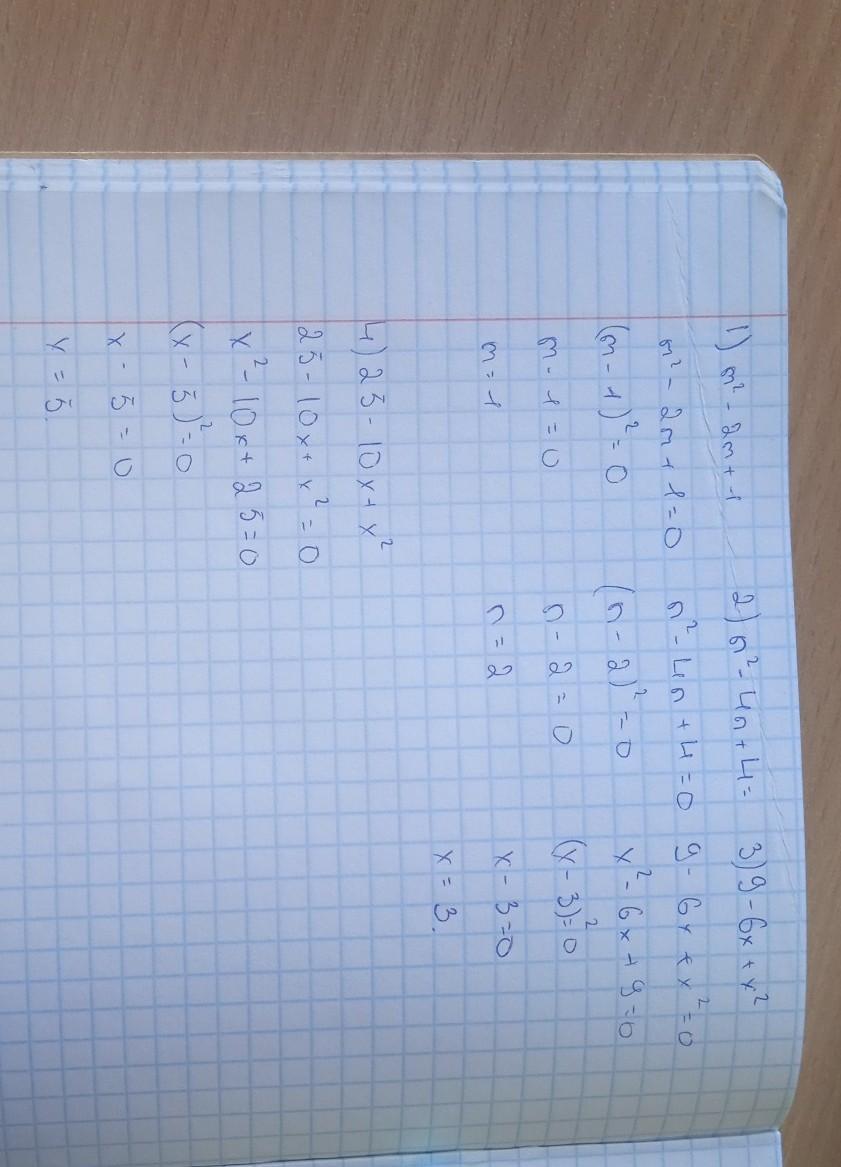 1) m² - 2m + 1
m² - 2m + 1 = 0
(m - 1)² = 0
m - 1 = 0
m = 1
2) n² - 4n + 4 =
n² - 4n + 4 = 0
(n - 2)² = 0
n - 2 = 0
n = 2
3) 9 - 6x + x²
9 - 6x + x² = 0
x² - 6x + 9 = 0
(x - 3)² = 0
x - 3 = 0
x = 3.
4) 25 - 10x + x²
25 - 10x + x² = 0
x² - 10x + 25 = 0
(x - 5)² = 0
x - 5 = 0
x = 5.